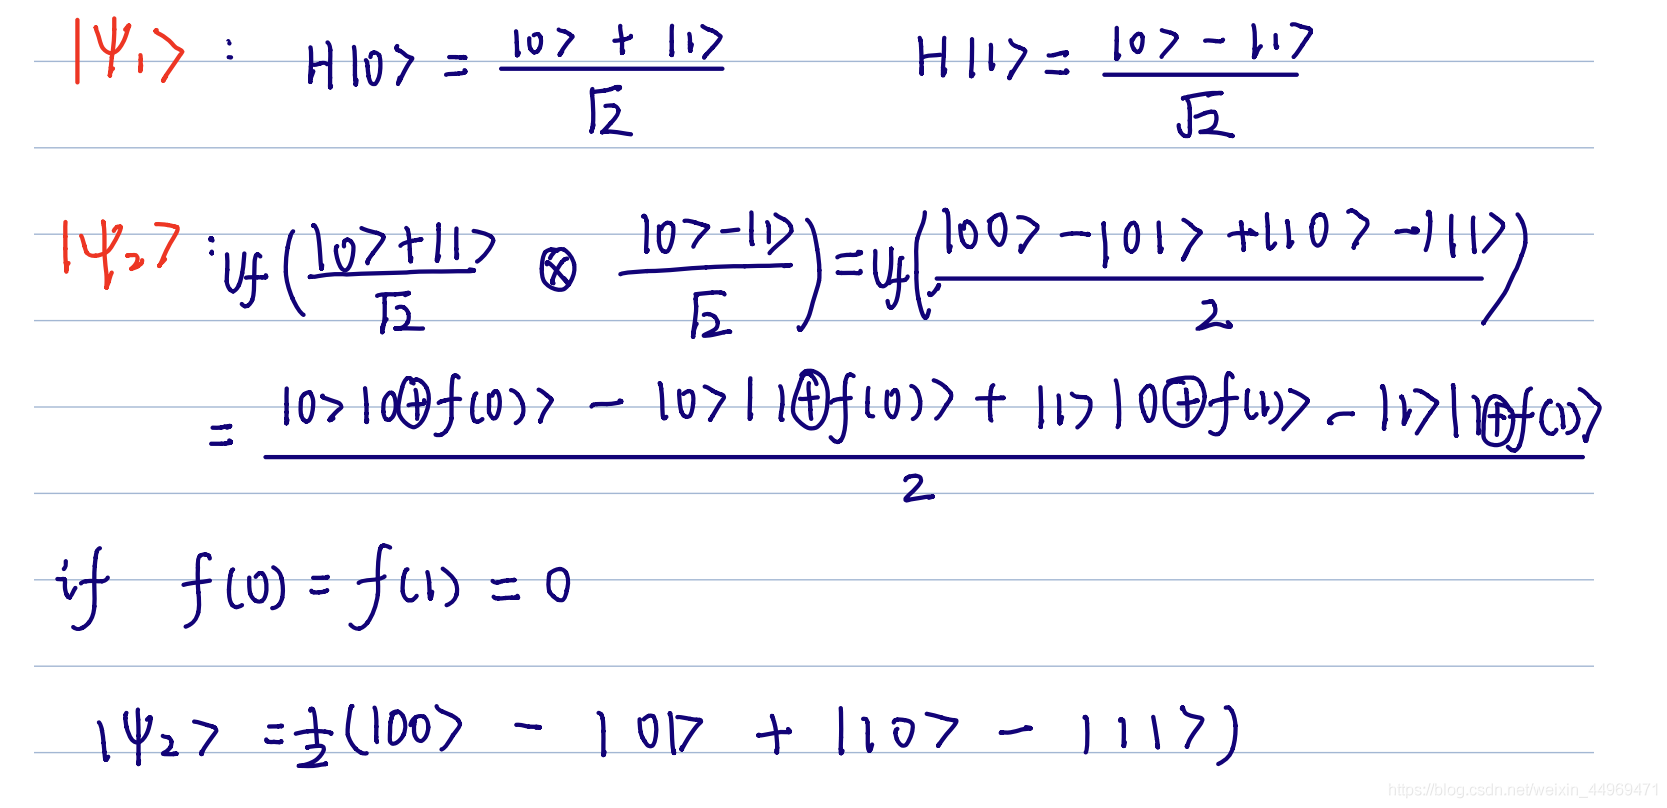 |ψ₁⟩ : H|0⟩ = (|0⟩ + |1⟩)/√2 H|1⟩ = (|0⟩ - |1⟩)/√2
|ψ₂⟩ : Uf( (|0⟩+|1⟩)/√2 ⊗ (|0⟩-|1⟩)/√2 ) = Uf( (|00⟩ - |01⟩ + |10⟩ - |11⟩)/2 )
= (|0⟩|0⊕f(0)⟩ - |0⟩|1⊕f(0)⟩ + |1⟩|0⊕f(1)⟩ - |1⟩|1⊕f(1)⟩)/2
if f(0) = f(1) = 0
|ψ₂⟩ = ½(|00⟩ - |01⟩ + |10⟩ - |11⟩)
https://blog.csdn.net/weixin_44969471